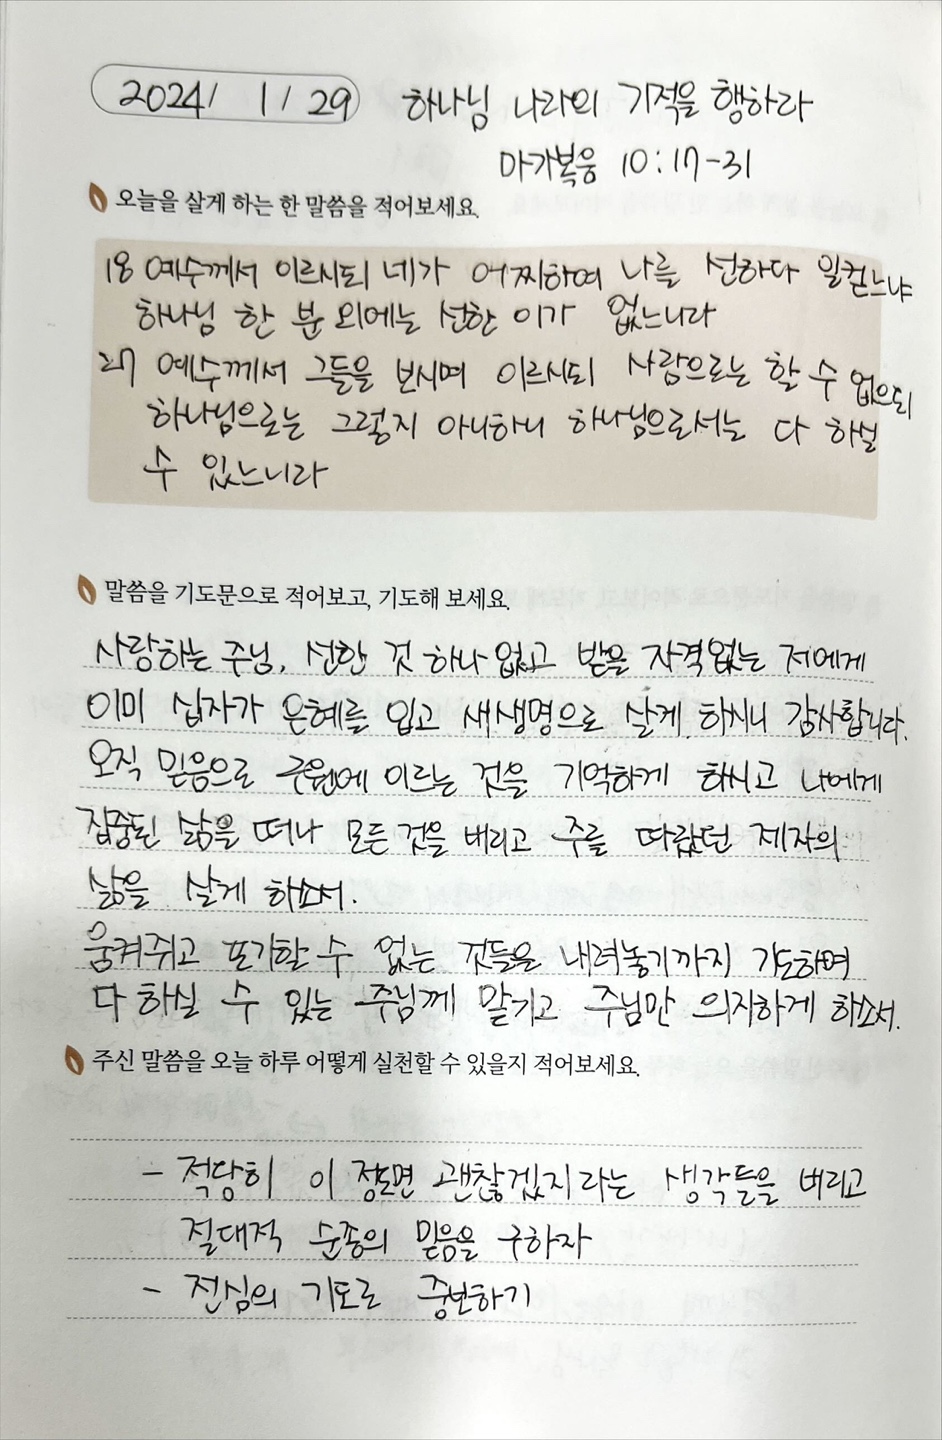 2024/ 1/ 29 하나님 나라의 기적을 행하라
마가복음 10:17-31
오늘을 살게 하는 한 말씀을 적어보세요.
18 예수께서 이르시되 네가 어찌하여 나를 선하다 일컫느냐
하나님 한 분 외에는 선한 이가 없느니라
27 예수께서 그들을 보시며 이르시되 사람으로는 할 수 없으되
하나님으로는 그렇지 아니하니 하나님으로서는 다 하실
수 있느니라
말씀을 기도문으로 적어보고, 기도해 보세요.
사랑하는 주님, 선한 것 하나 없고 받을 자격없는 저에게
이미 십자가 은혜를 입고 새생명으로 살게 하시니 감사합니다.
오직 믿음으로 구원에 이르는 것을 기억하게 하시고 나에게
집중된 삶을 떠나 모든것을 버리고 주를 따랐던 제자의
삶을 살게 하소서.
움켜쥐고 포기할 수 없는 것들을 내려놓기까지 기도하며
다 하실 수 있는 주님께 맡기고 주님만 의지하게 하소서.
주신 말씀을 오늘 하루 어떻게 실천할 수 있을지 적어보세요.
- 적당히 이 정도면 괜찮겠지 라는 생각들을 버리고
절대적 순종의 믿음을 구하자
- 전심의 기도로 중보하기